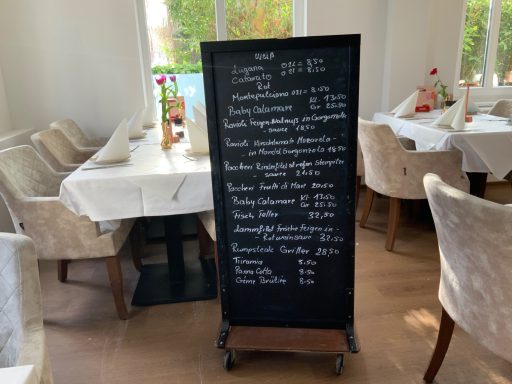 Weiß
Lugana 0,2l = 8,50
Catarato 0,2l = 8,50
Rot
Montepulciano 0,2l = 8,50
Baby Calamare Kl. 13.50
Gr 25.50
Ravioli Feigen-Walnuß in Gorgonzola-
- sauce 18,50
Ravioli Kirschtomate Mozzarella-
- in Gorgonzola 18.50
Paccheri Rindsfilet
- sauce 21.50
Paccheri Frutti di Mare 20.50
Baby Calamare Kl 13.50
Gr. 25.50
Fisch Teller 32,50
Lammfilet frische Feigen in -
- Rotweinsauce 32.50
Rumpsteak Griller 28,50
Tiramis 8.50
Panna Cotta 8.50
Creme Brûlée 8.50